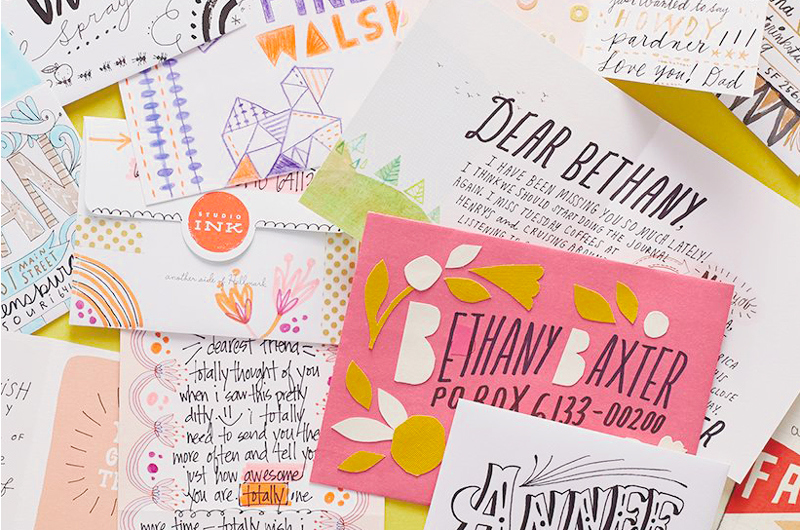 Spray
WALSH
you wanted to say
HOWDY
pardner!!!
Love you! Dad
SF
STUDIO
INK
another side of Hallmark
DEAR BETHANY,
I HAVE BEEN MISSING YOU SO MUCH LATELY!
I THINK WE SHOULD START DOING THE JOURNAL
AGAIN. I MISS TUESDAY COFFEES AT
HENRYS AND CRUISING AROUND
LISTENING TO
MAIN
STREET
BETHANY BAXTER
PO BOX 6133-00200
dearest friend
totally thought of you
when i saw this pretty
ditty i totally
need to send you the
more often and tell you
just how awesome
you are. totally one
more time - totally wish i
OF
CLOSE
ANNEE
FA